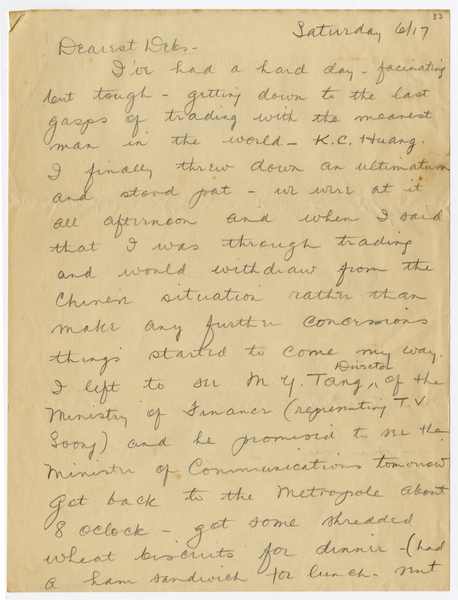 33
Saturday 6/17
Dearest Debs-
I've had a hard day - facinating
but tough - getting down to the last
gasps of trading with the meanest
man in the world - K.C. Huang.
I finally threw down an ultimatum
and stood pat - we were at it
all afternoon and when I said
that I was through trading
and would withdraw from the
Chinese situation rather than
make any further concessions
things started to come my way.
I left to see M.Y. Tang, Director of the
Ministry of Finance (representing T.V.
Soong) and he promised to see the
Ministry of Communications tomorrow
Got back to the Metropole about
8 oclock - got some shredded
wheat biscuits for dinner - (had
a ham sandwich for lunch - sent